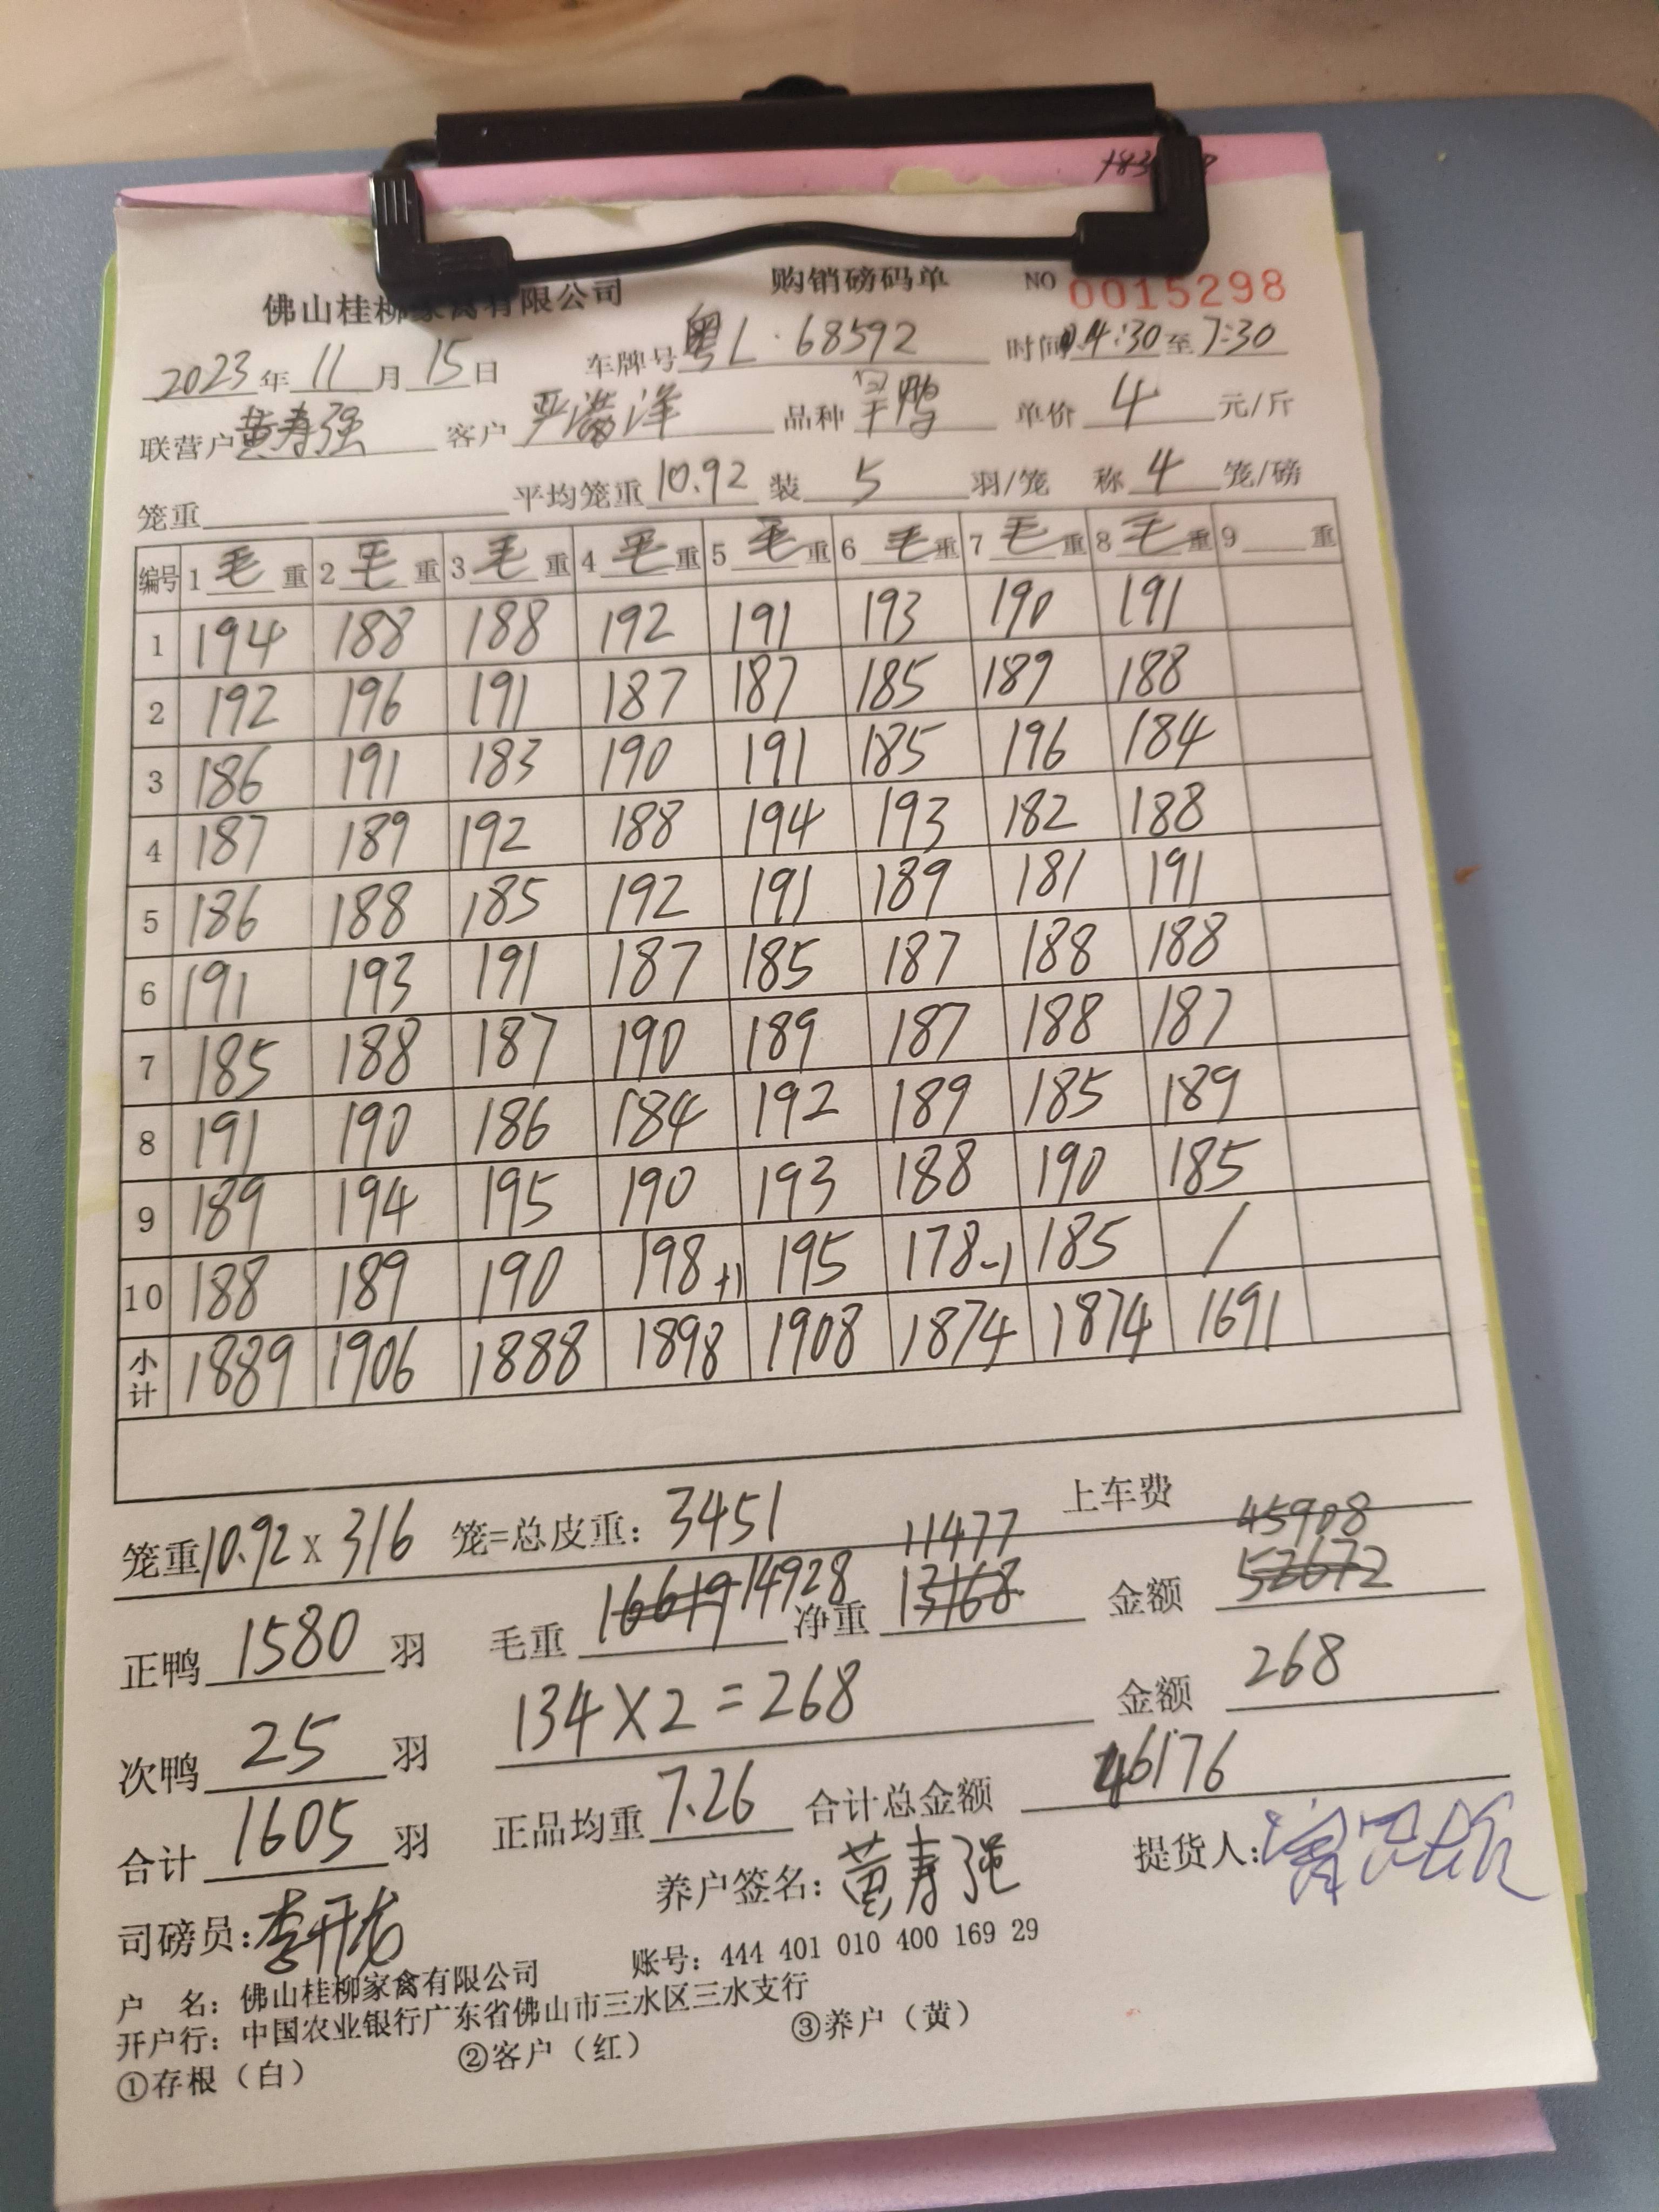 佛山桂柳家禽有限公司 购销磅码单 NO 0015298
2023年11月15日 车牌号粤L·68592 时间4:30至7:30
联营户黄寿强 客户严满洋 品种 鸭 单价4元/斤
笼重 平均笼重10.92 装5羽/笼 称4笼/磅
编号 1毛重 2毛重 3毛重 4毛重 5毛重 6毛重 7毛重 8毛重 9重
1 194 188 188 192 191 193 190 191
2 192 196 191 187 187 185 189 188
3 186 191 183 190 191 185 196 184
4 187 189 192 188 194 193 182 188
5 186 188 185 192 191 189 181 191
6 191 193 191 187 185 187 188 188
7 185 188 187 190 189 187 188 187
8 191 190 186 184 192 189 185 189
9 189 194 195 190 193 188 190 185
10 188 189 190 198+1 195 178-1 185 /
小计 1889 1906 1888 1898 1908 1874 1874 1691
笼重10.92×316笼=总皮重:3451 上车费
11477 45908
正鸭1580羽 毛重16619 14928 净重13168 金额52672
次鸭25羽 134×2=268 金额268
合计1605羽 正品均重7.26 合计总金额46176
司磅员: 养户签名:黄寿强 提货人:
户 名:佛山桂柳家禽有限公司 账号:444 401 010 400 169 29
开户行:中国农业银行广东省佛山市三水区三水支行
①存根(白) ②客户(红) ③养户(黄)